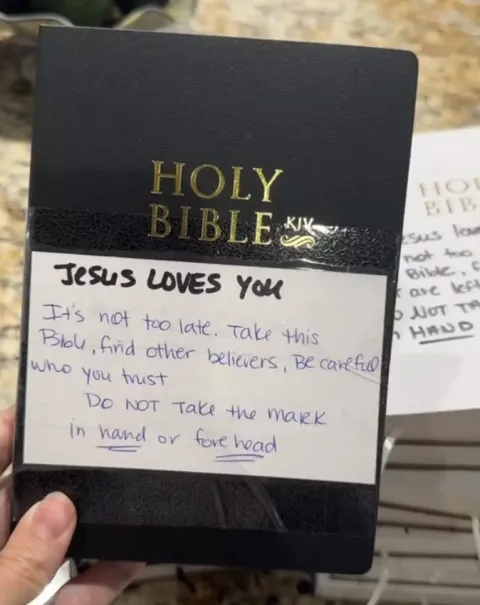 HOLY
BIBLE KJV
JESUS LOVES YOU
It's not too late. Take this
Bible, find other believers, Be careful
who you trust
DO NOT Take the mark
in hand or forehead
HOL
BIB
esus lov
not too
Bible, f
are left
NOT TA
HAND